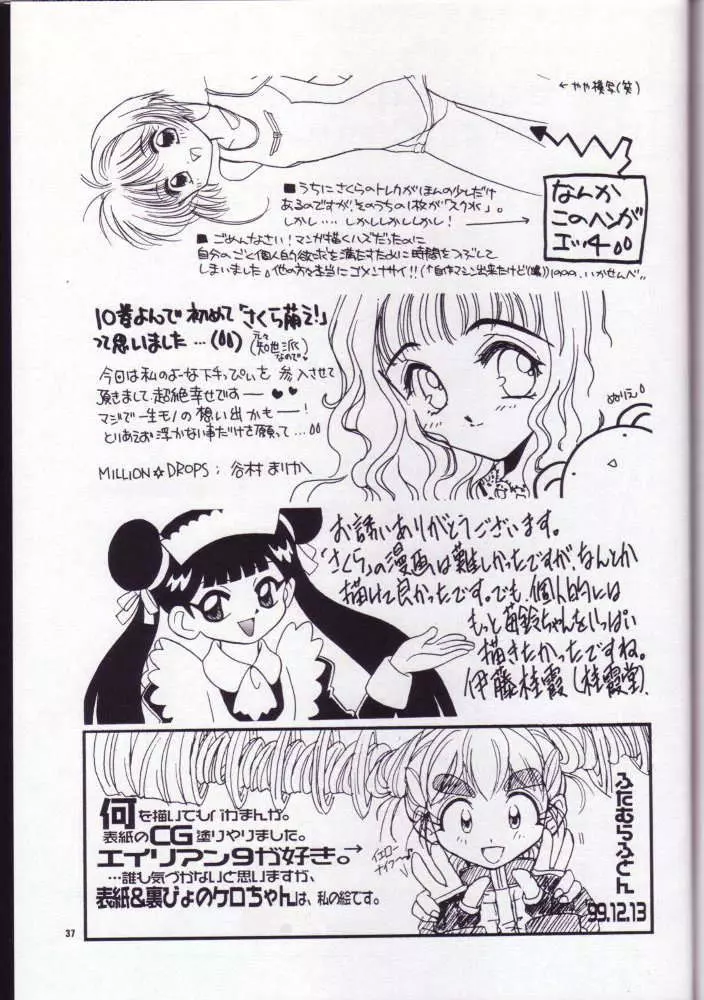 ←やや横写(笑)
■うちにさくらのトレカがほんの少しだけ
あるのですが、そのうちの1枚が「スク水」。
しかし‥‥しかししかししかし!
なんか
このヘンが
エッチ
■ごめんなさい!マンガ描くハズだったのに
自分のごく個人的欲求を満たすために時間をつぶして
しまいました。他の方々本当にゴメンナサイ!!
10巻よんで初めて「さくら萌え!」
って思いました…
元々
知世派
なので
今回は私のよーな下手っぴぃを参入させて
頂きまして超絶幸せですー♥♥
マジで一生モノの想い出かもー!
といあえず浮かない事だけを願って…
MILLION☆DROPS;谷村まりか
ぬりえ
お誘いありがとうございます。
「さくら」の漫画は難しかったですが、なんとか
描けて良かったです。でも、個人的には
もっと苺鈴ちゃんをいっぱい
描きたかったですね。
伊藤桂霞(桂霞堂)
何を描いてもパクまんが。
表紙のCG塗りやりました。
エイリアン9が好き。→
…誰も気づかないと思いますが、
表紙&裏びょのケロちゃんは、私の絵です。
イエロー
ナイフ〜
ふたむらふどん
99.12.13
37